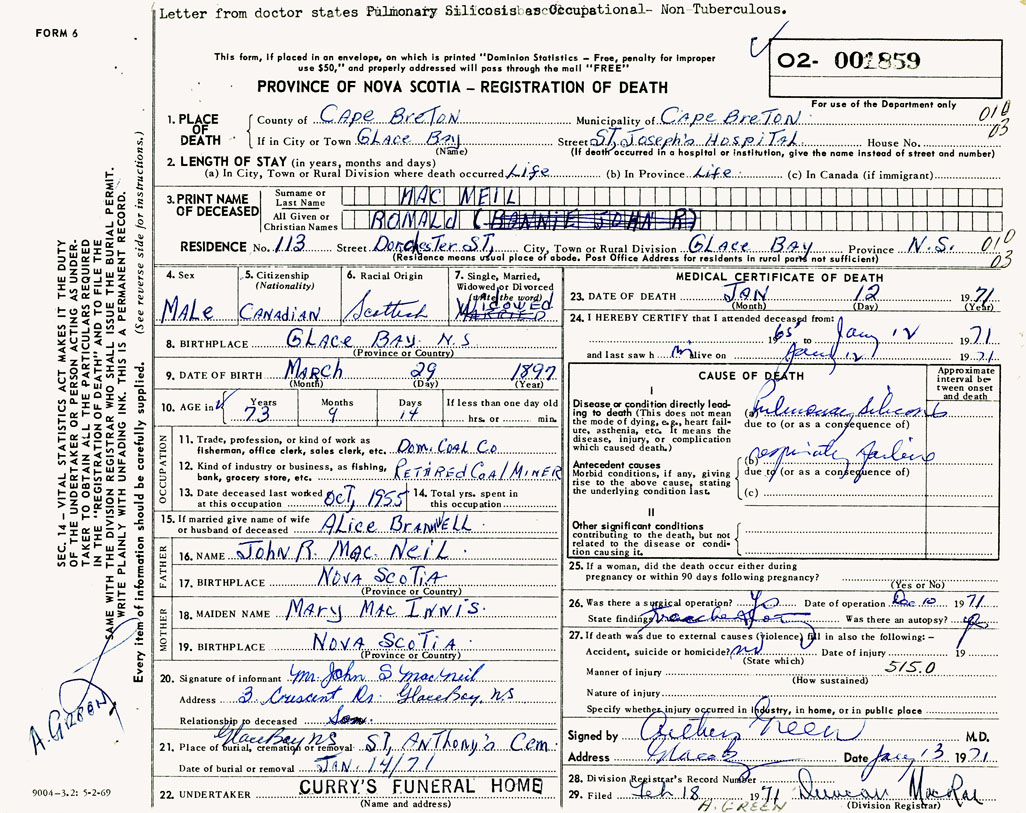 Letter from doctor states Pulmonary Silicosis as Occupational- Non-Tuberculous.
FORM 6
This form, if placed in an envelope, on which is printed "Dominion Statistics – Free, penalty for improper
use $50," and properly addressed will pass through the mail "FREE"
02- 001859
For use of the Department only
PROVINCE OF NOVA SCOTIA – REGISTRATION OF DEATH
010
03
1. PLACE OF DEATH
County of CAPE BRETON Municipality of CAPE BRETON
If in City or Town GLACE BAY Street ST. Joseph's HOSPITAL House No.
(Name) (If death occurred in a hospital or institution, give the name instead of street and number)
2. LENGTH OF STAY (in years, months and days)
(a) In City, Town or Rural Division where death occurred Life (b) In Province Life (c) In Canada (if immigrant)
3. PRINT NAME OF DECEASED
Surname or Last Name MAC NEIL
All Given or Christian Names RONALD (BANNIE JOHN R)
RESIDENCE No. 113 Street Dorchester ST, City, Town or Rural Division GLACE BAY Province N.S. 010
03
(Residence means usual place of abode. Post Office Address for residents in rural parts not sufficient)
4. Sex 5. Citizenship (Nationality) 6. Racial Origin 7. Single, Married, Widowed or Divorced (write the word)
MALE CANADIAN Scottish WIDOWED MARRIED
8. BIRTHPLACE GLACE BAY N.S
(Province or Country)
9. DATE OF BIRTH MARCH 29 1897
(Month) (Day) (Year)
10. AGE in Years Months Days If less than one day old
73 9 14 hrs. or min.
OCCUPATION
11. Trade, profession, or kind of work as
fisherman, office clerk, sales clerk, etc. DOM. COAL CO.
12. Kind of industry or business, as fishing,
bank, grocery store, etc. RETIRED COAL MINER
13. Date deceased last worked at this occupation OCT, 1955 14. Total yrs. spent in this occupation
15. If married give name of wife
or husband of deceased ALICE BRAMWELL
FATHER
16. NAME John R. MAC NEIL
17. BIRTHPLACE NOVA SCOTIA
(Province or Country)
MOTHER
18. MAIDEN NAME MARY MAC INNIS.
19. BIRTHPLACE NOVA SCOTIA
(Province or Country)
20. Signature of informant Mr. John S MacNeil
Address 3 Crescent Dr. Glace Bay, NS
Relationship to deceased Son
Glace Bay NS
21. Place of burial, cremation or removal ST, ANTHONY'S Cem.
Date of burial or removal JAN. 14/71
22. UNDERTAKER CURRY'S FUNERAL HOME
(Name and address)
MEDICAL CERTIFICATE OF DEATH
23. DATE OF DEATH JAN 12 1971
(Month) (Day) (Year)
24. I HEREBY CERTIFY that I attended deceased from:
1965 to Jany 12 1971
and last saw h im alive on Jany 12 1971
CAUSE OF DEATH
Approximate interval between onset and death
I
Disease or condition directly leading to death (This does not mean the mode of dying, e.g., heart failure, asthenia, etc. It means the disease, injury, or complication which caused death.)
(a) Pulmonary Silicosis
due to (or as a consequence of)
Antecedent causes
Morbid conditions, if any, giving rise to the above cause, stating the underlying condition last.
(b) respiratory failure
due to (or as a consequence of)
(c)
II
Other significant conditions
contributing to the death, but not related to the disease or condition causing it.
25. If a woman, did the death occur either during
pregnancy or within 90 days following pregnancy?
(Yes or No)
26. Was there a surgical operation? Yes Date of operation Dec 10 1971
State findings Was there an autopsy? Yes
27. If death was due to external causes (violence) fill in also the following:–
Accident, suicide or homicide? no Date of injury 19
(State which)
Manner of injury 515.0
(How sustained)
Nature of injury
Specify whether injury occurred in industry, in home, or in public place
Signed by Arthur Green M.D.
Address Glace B Date Jany 13 1971
28. Division Registrar's Record Number
29. Filed Feb 18 1971 Duncan MacRae
A. GREEN (Division Registrar)
SEC. 14 – VITAL STATISTICS ACT MAKES IT THE DUTY
OF THE UNDERTAKER OR PERSON ACTING AS UNDERTAKER
TO OBTAIN ALL THE PARTICULARS REQUIRED
IN THE "REGISTRATION OF DEATH" AND FILE THE
SAME WITH THE DIVISION REGISTRAR WHO SHALL ISSUE THE BURIAL PERMIT.
WRITE PLAINLY WITH UNFADING INK. THIS IS A PERMANENT RECORD.
Every item of information should be carefully supplied. (See reverse side for instructions.)
A. GREEN
9004-3.2: 5-2-69